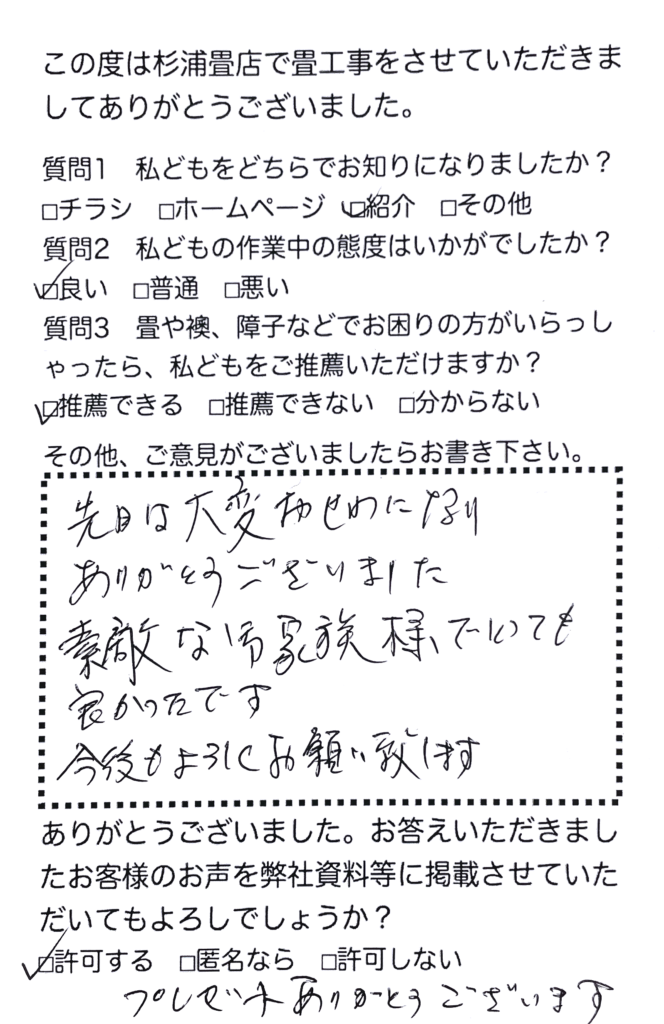 この度は杉浦畳店で畳工事をさせていただきま
してありがとうございました。
質問1　私どもをどちらでお知りになりましたか？
□チラシ　□ホームページ　☑紹介　□その他
質問2　私どもの作業中の態度はいかがでしたか？
☑良い　□普通　□悪い
質問3　畳や襖、障子などでお困りの方がいらっし
ゃったら、私どもをご推薦いただけますか？
☑推薦できる　□推薦できない　□分からない
その他、ご意見がございましたらお書き下さい。
先日は大変おせわになり
ありがとうございました
素敵な御家族様でとても
良かったです
今後もよろしくお願い致します
ありがとうございました。お答えいただきまし
たお客様のお声を弊社資料等に掲載させていた
だいてもよろしでしょうか？
☑許可する　□匿名なら　□許可しない
プレゼントありがとうございます